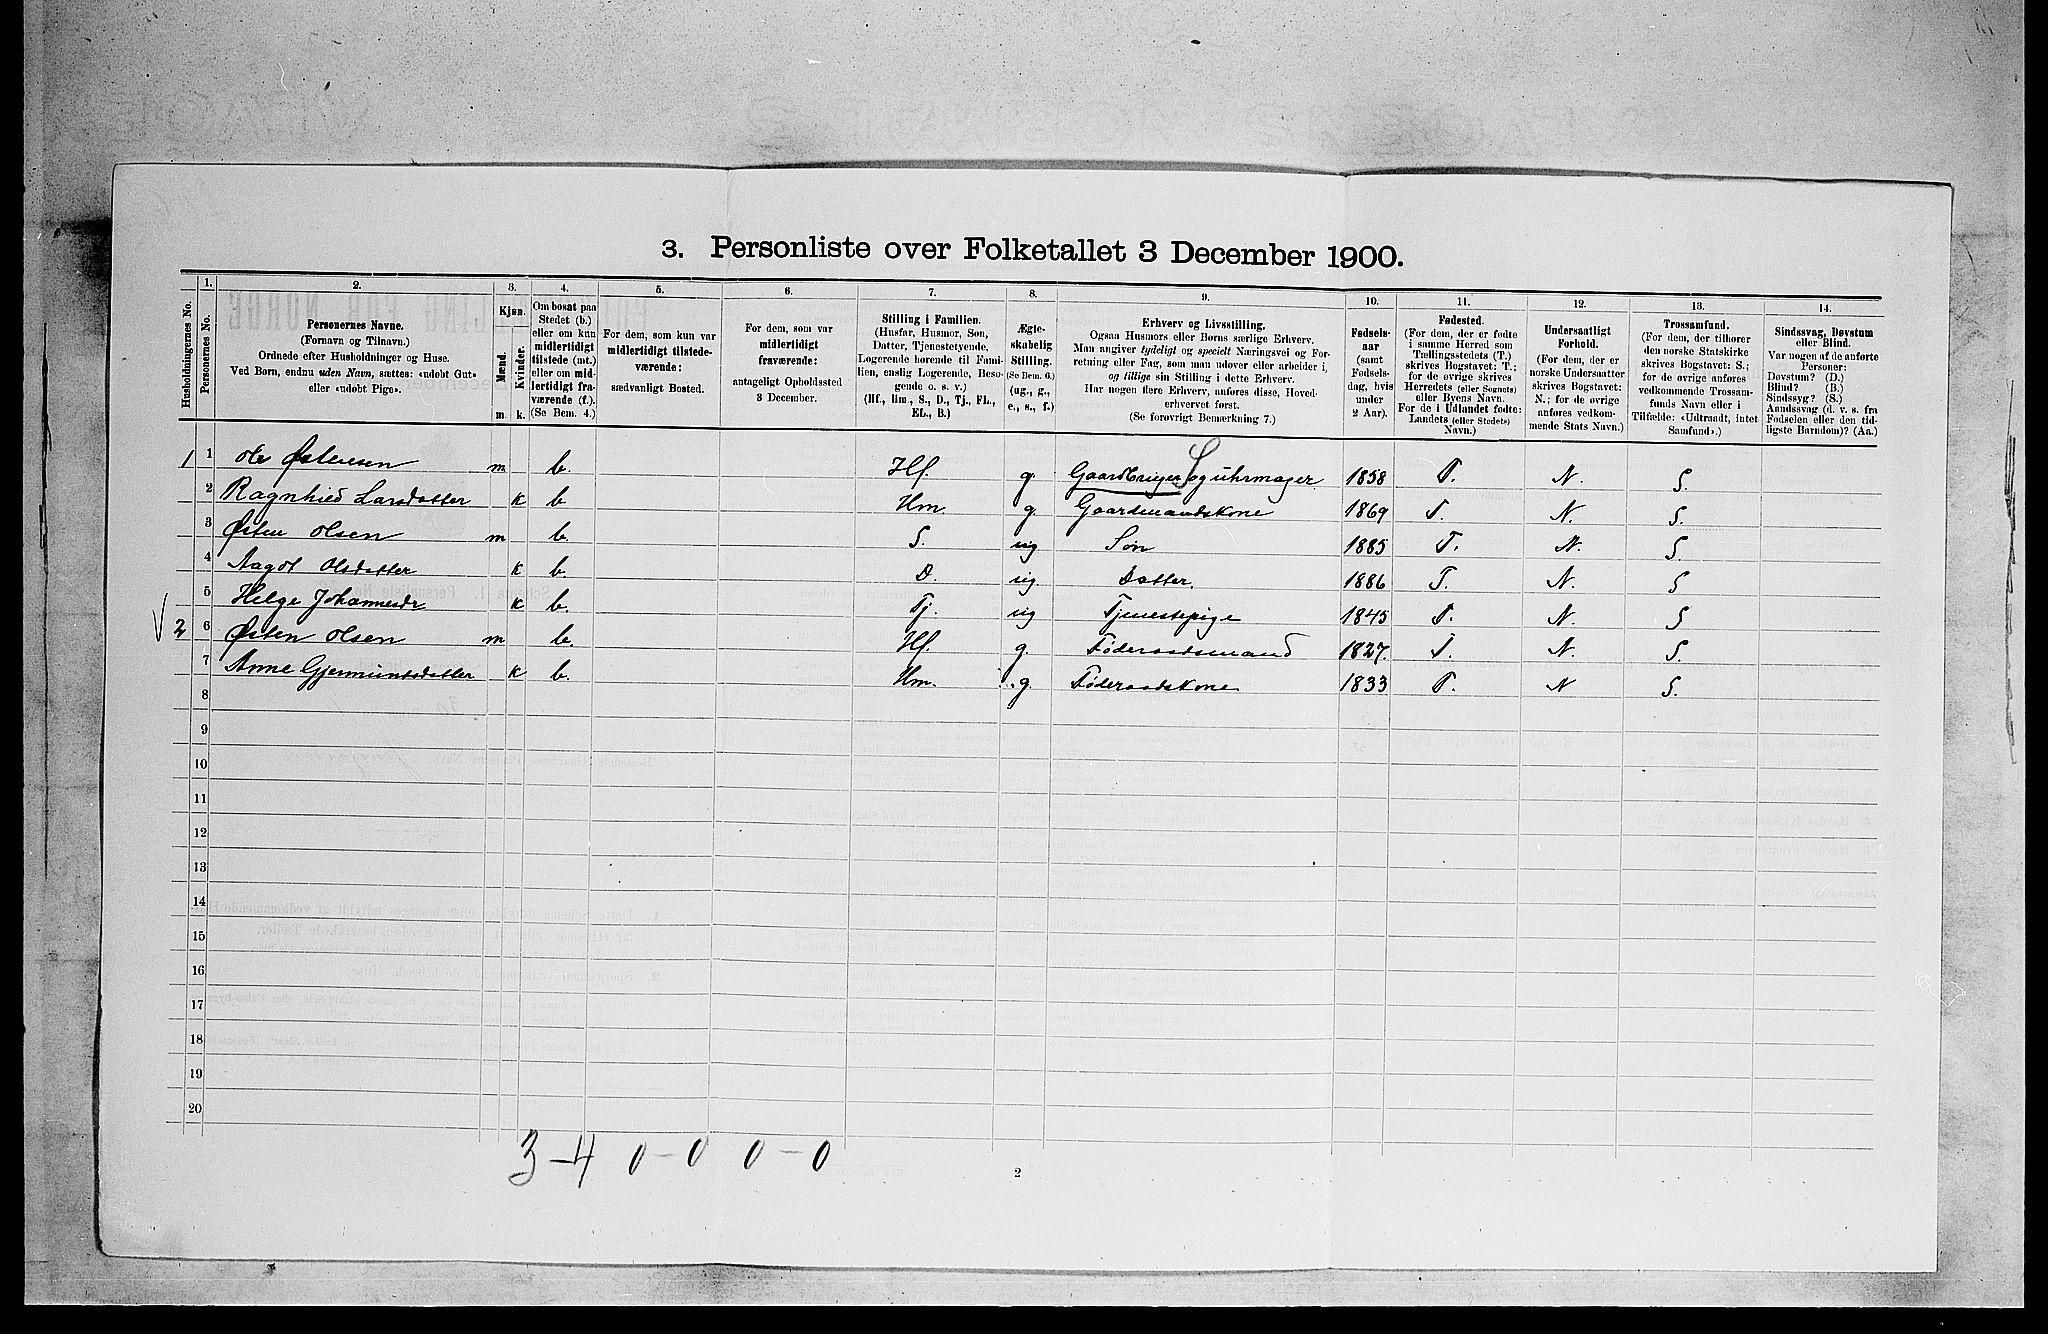 3. Personliste over Folketallet 3 December 1900.
1. 2. 3. 4. 5. 6. 7. 8. 9. 10. 11. 12. 13. 14.
Husholdningernes No.
Personernes No.
Personernes Navne.
(Fornavn og Tilnavn.)
Ordnede efter Husholdninger og Huse.
Ved Børn, endnu uden Navn, sættes: «udøbt Gut»
eller «udøbt Pige».
Kjøn.
Mænd.
Kvinder.
m. k.
Om bosat paa
Stedet (b.)
eller om kun
midlertidigt
tilstede (mt.)
eller om mid-
lertidigt fra-
værende (f.).
(Se Bem. 4.)
For dem, som kun var
midlertidigt tilstede-
værende:
sædvanligt Bosted.
For dem, som var
midlertidigt
fraværende:
antageligt Opholdssted
3 December.
Stilling i Familien.
(Husfar, Husmor, Søn,
Datter, Tjenestetyende,
Logerende hørende til Fami-
lien, enslig Logerende, Besø-
gende o. s. v.)
(Hf., Hm., S., D., Tj., FL.,
EL., B.)
Ægte-
skabelig
Stilling.
(Se Bem. 6.)
(ug., g.,
e., s., f.)
Erhverv og Livsstilling.
Ogsaa Husmors eller Børns særlige Erhverv.
Man angiver tydeligt og specielt Næringsvei og For-
retning eller Fag, som man udøver eller arbeider i,
og tillige sin Stilling i dette Erhverv.
Har nogen flere Erhverv, anføres disse, Hoved-
erhvervet først.
(Se forøvrigt Bemærkning 7.)
Fødsels-
aar
(samt
Fødsels-
dag, hvis
under
2 Aar).
Fødested.
(For dem, der er fødte
i samme Herred som
Tællingsstedets (T.)
skrives Bogstavet: T.;
for de øvrige skrives
Herredets (eller Sognets)
eller Byens Navn.
For de i Udlandet fødte:
Landets (eller Stedets)
Navn.)
Undersaatligt
Forhold.
(For dem, der er
norske Undersaatter
skrives Bogstavet:
N.; for de øvrige
anføres vedkom-
mende Stats Navn.)
Trossamfund.
(For dem, der tilhører
den norske Statskirke
skrives Bogstavet: S.;
for de øvrige anføres
vedkommende Trossam-
funds Navn eller i
Tilfælde: «Udtraadt, intet
Samfund».)
Sindssvag, Døvstum
eller Blind.
Var nogen af de anførte
Personer:
Døvstum? (D.)
Blind? (B.)
Sindssyg? (S.)
Aandssvag (d. v. s. fra
Fødselen eller den tid-
ligste Barndom)? (Aa.)
1 1 Ole Østensen m b. Hf. g. Gaardbruger S og uhrmager 1858 T. N. S.
2 Ragnhild Larsdatter k b Hm g. Gaardmandskone 1869 T. N. S.
3 Østen Olsen m b. S. ug Søn 1885 T. N. S.
4 Aagot Olsdatter k b. D. ug. Datter. 1886 T. N. S
5 Helge Johannesdr k b. Tj. ug Tjenestepige 1845 T. N. S
2 6 Østen Olsen m b. Hf. g. Føderaadsmand 1827. T. N. S.
7 Anne Gjermundsdatter k b. Hm. g. Føderaadskone 1833 T. N S.
8
9
10
11
12
13
14
15
16
17
18
19
20
3-4 0-0 0-0
2